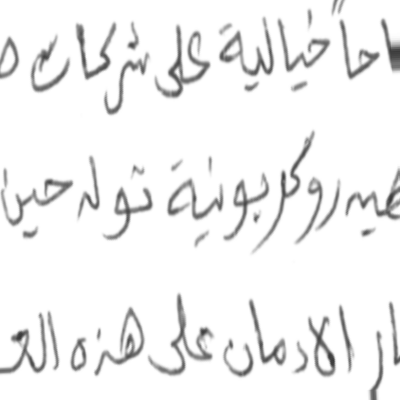 احاً خيالية على شركات
هيدروكربونية تولد حين
ار الادمان على هذه الع